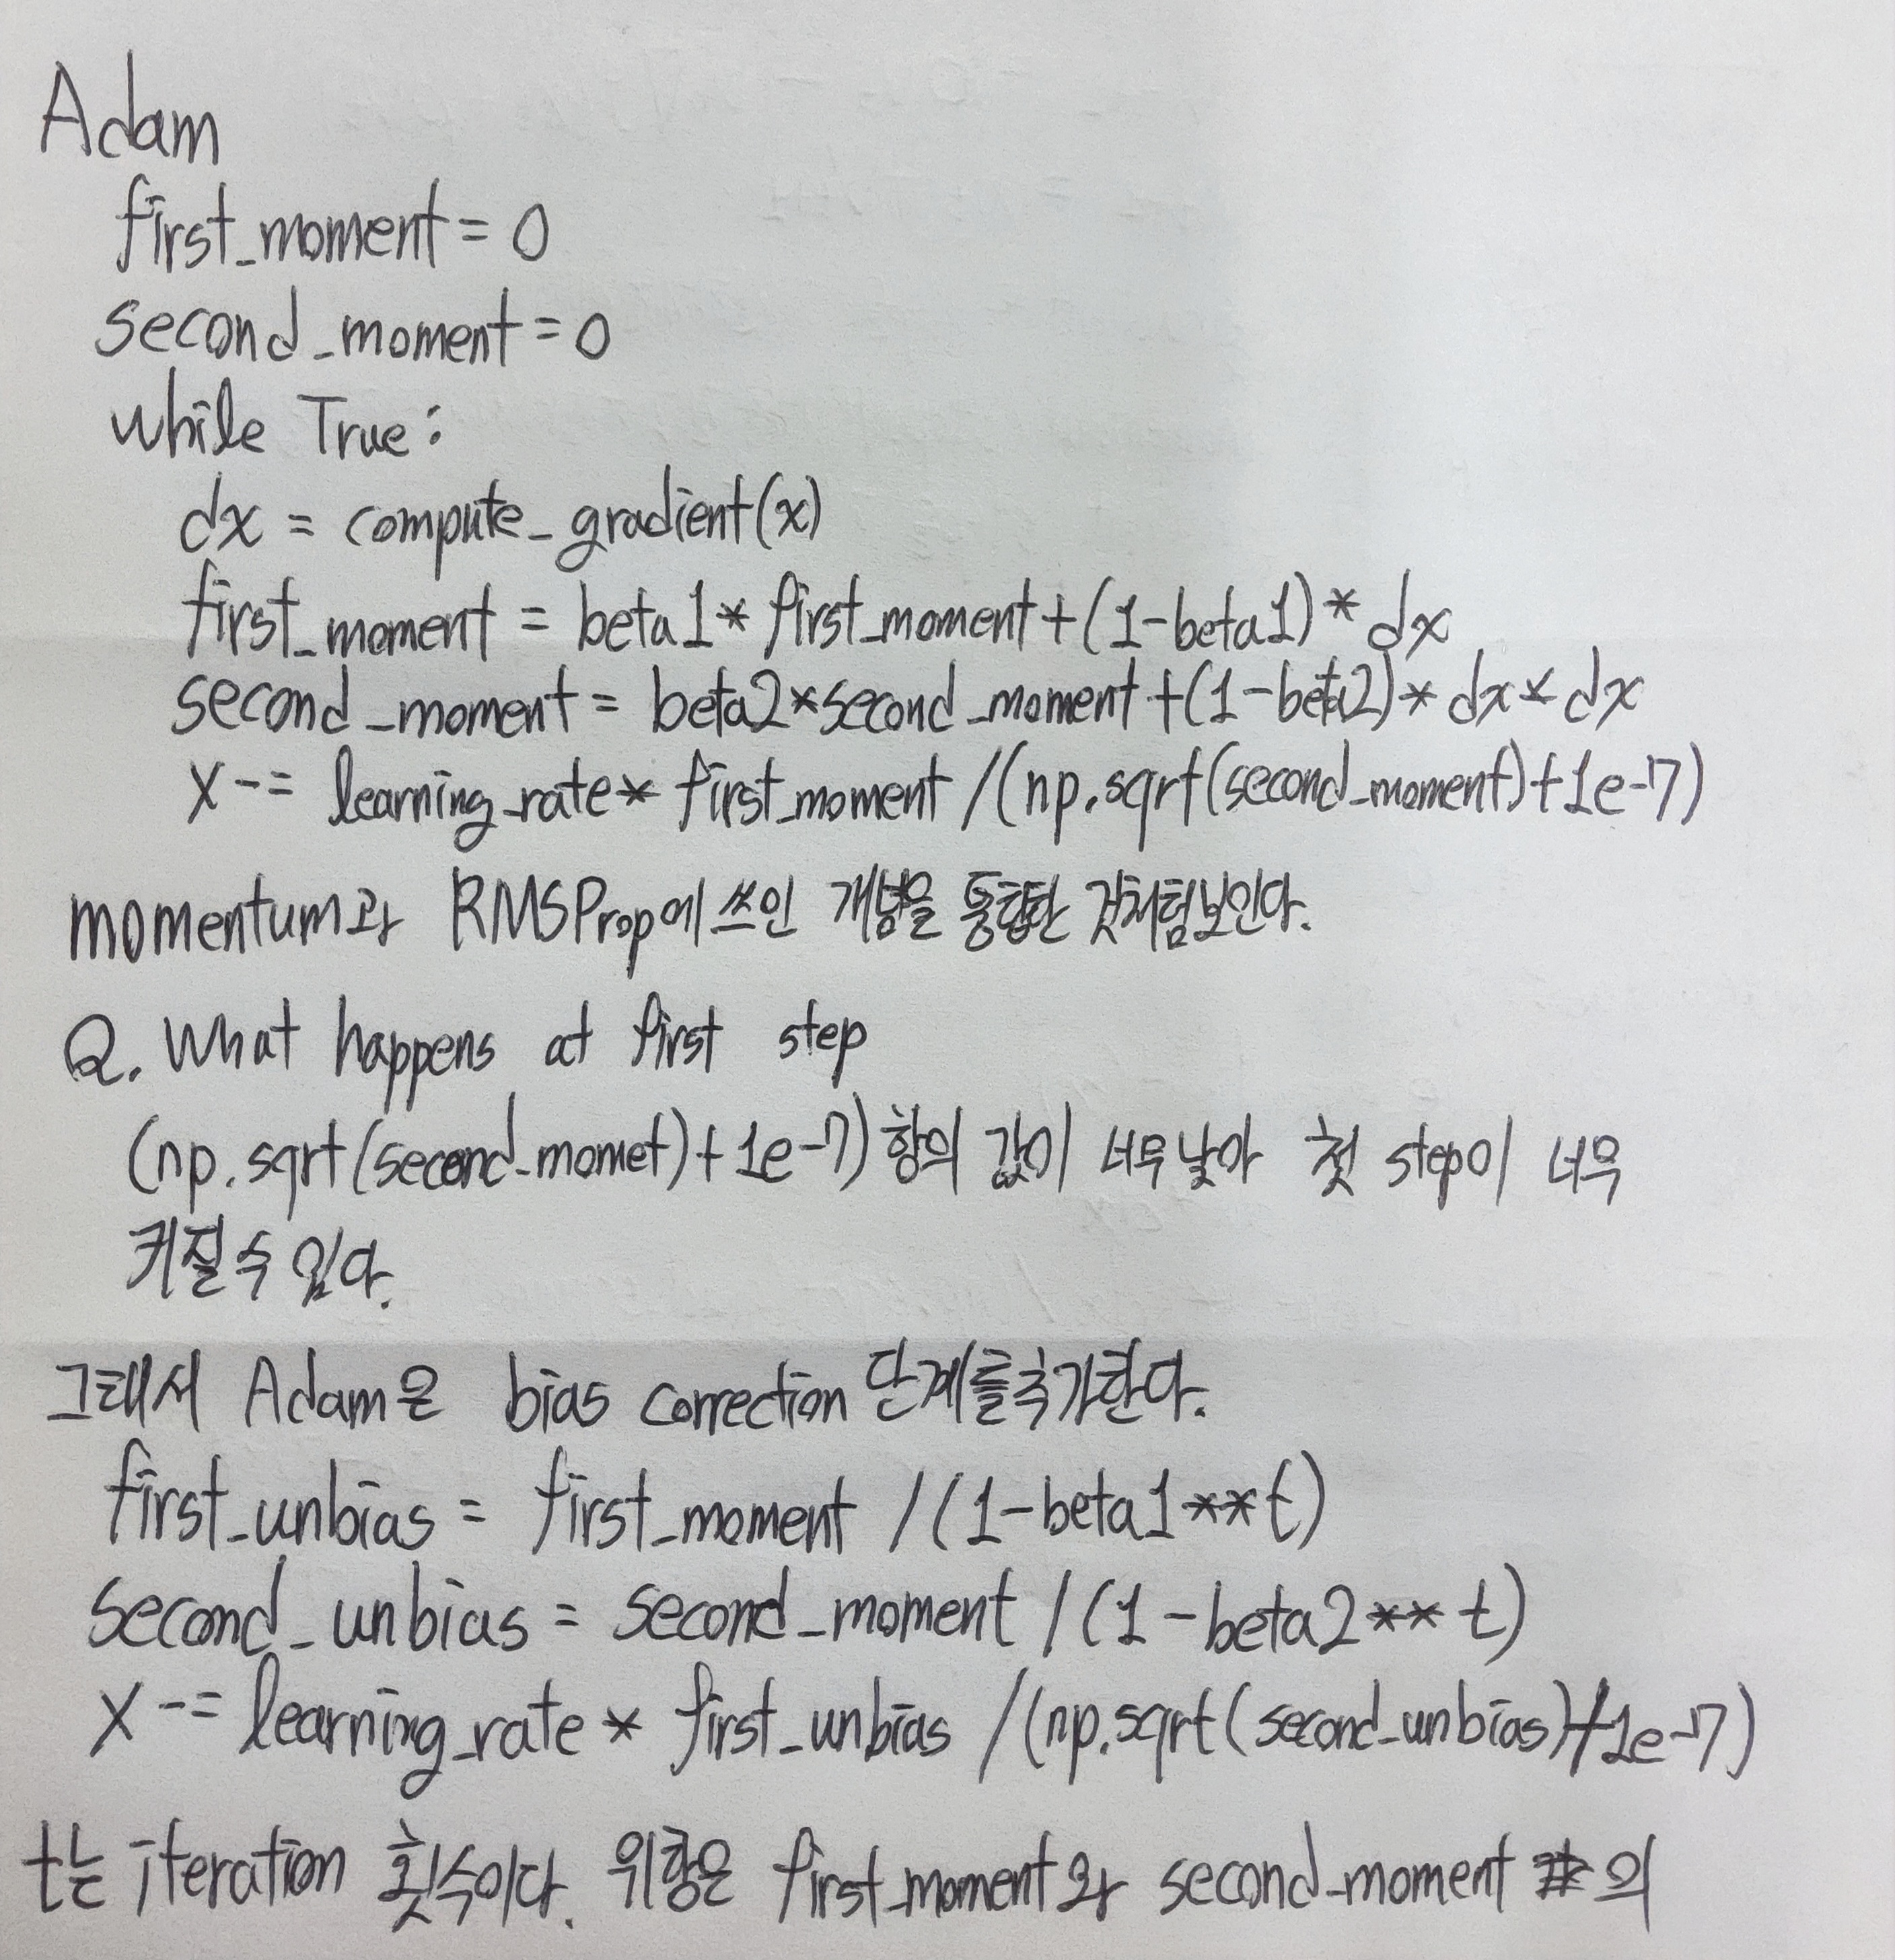 Adam
first_moment = 0
second_moment = 0
while True:
dx = compute_gradient(x)
first_moment = beta1* first_moment+(1-beta1)* dx
second_moment = beta2*second_moment+(1-beta2)* dx * dx
x -= learning_rate* first_moment /(np.sqrt(second_moment)+1e-7)
momentum과 RMSProp에 쓰인 개념을 통합한 것처럼보인다.
Q. What happens at first step
(np.sqrt(second_momet)+1e-7)항의 값이 너무낮아 첫 step이 너무
커질수 있다.
그래서 Adam은 bias correction 단계를추가한다.
first_unbias = first_moment /(1-beta1**t)
second_unbias = second_moment /(1-beta2** t)
x -= learning_rate * first_unbias /(np.sqrt(second_unbias)+1e-7)
t는 iteration 횟수이다. 위항은 first_moment와 second_moment 의